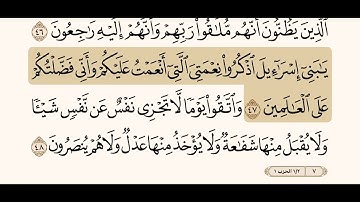 ٱلَّذِينَ يَظُنُّونَ أَنَّهُم مُّلَٰقُوا۟ رَبِّهِمْ وَأَنَّهُمْ إِلَيْهِ رَٰجِعُونَ ٤٦
يَٰبَنِىٓ إِسْرَٰٓءِيلَ ٱذْكُرُوا۟ نِعْمَتِىَ ٱلَّتِىٓ أَنْعَمْتُ عَلَيْكُمْ وَأَنِّى فَضَّلْتُكُمْ
عَلَى ٱلْعَٰلَمِينَ ٤٧ وَٱتَّقُوا۟ يَوْمًا لَّا تَجْزِى نَفْسٌ عَن نَّفْسٍ شَيْـًٔا
وَلَا يُقْبَلُ مِنْهَا شَفَٰعَةٌ وَلَا يُؤْخَذُ مِنْهَا عَدْلٌ وَلَا هُمْ يُنصَرُونَ ٤٨
٧ ١/٢ الحزب ١